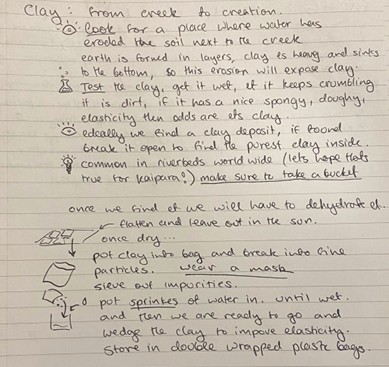 Clay: from creek to creation.
Look for a place where water has
eroded the soil next to the creek
earth is formed in layers, clay is heavy and sinks
to the bottom, so this erosion will expose clay.
Test the clay, get it wet, if it keeps crumbling
it is dirt, if it has a nice spongy, doughy,
elasticity then odds are its clay.
ideally we find a clay deposit, if found
break it open to find the purest clay inside.
common in riverbeds world wide (lets hope thats
true for kaipara!) make sure to take a bucket
once we find it we will have to dehydrate it.
flatten and leave out in the sun.
once dry...
pot clay into bag and break into fine
particles. wear a mask
sieve out impurities.
pot sprinkes of water in. until wet.
and then we are ready to go and
wedge the clay to impove elasticity.
Store in double wrapped plastic bags.